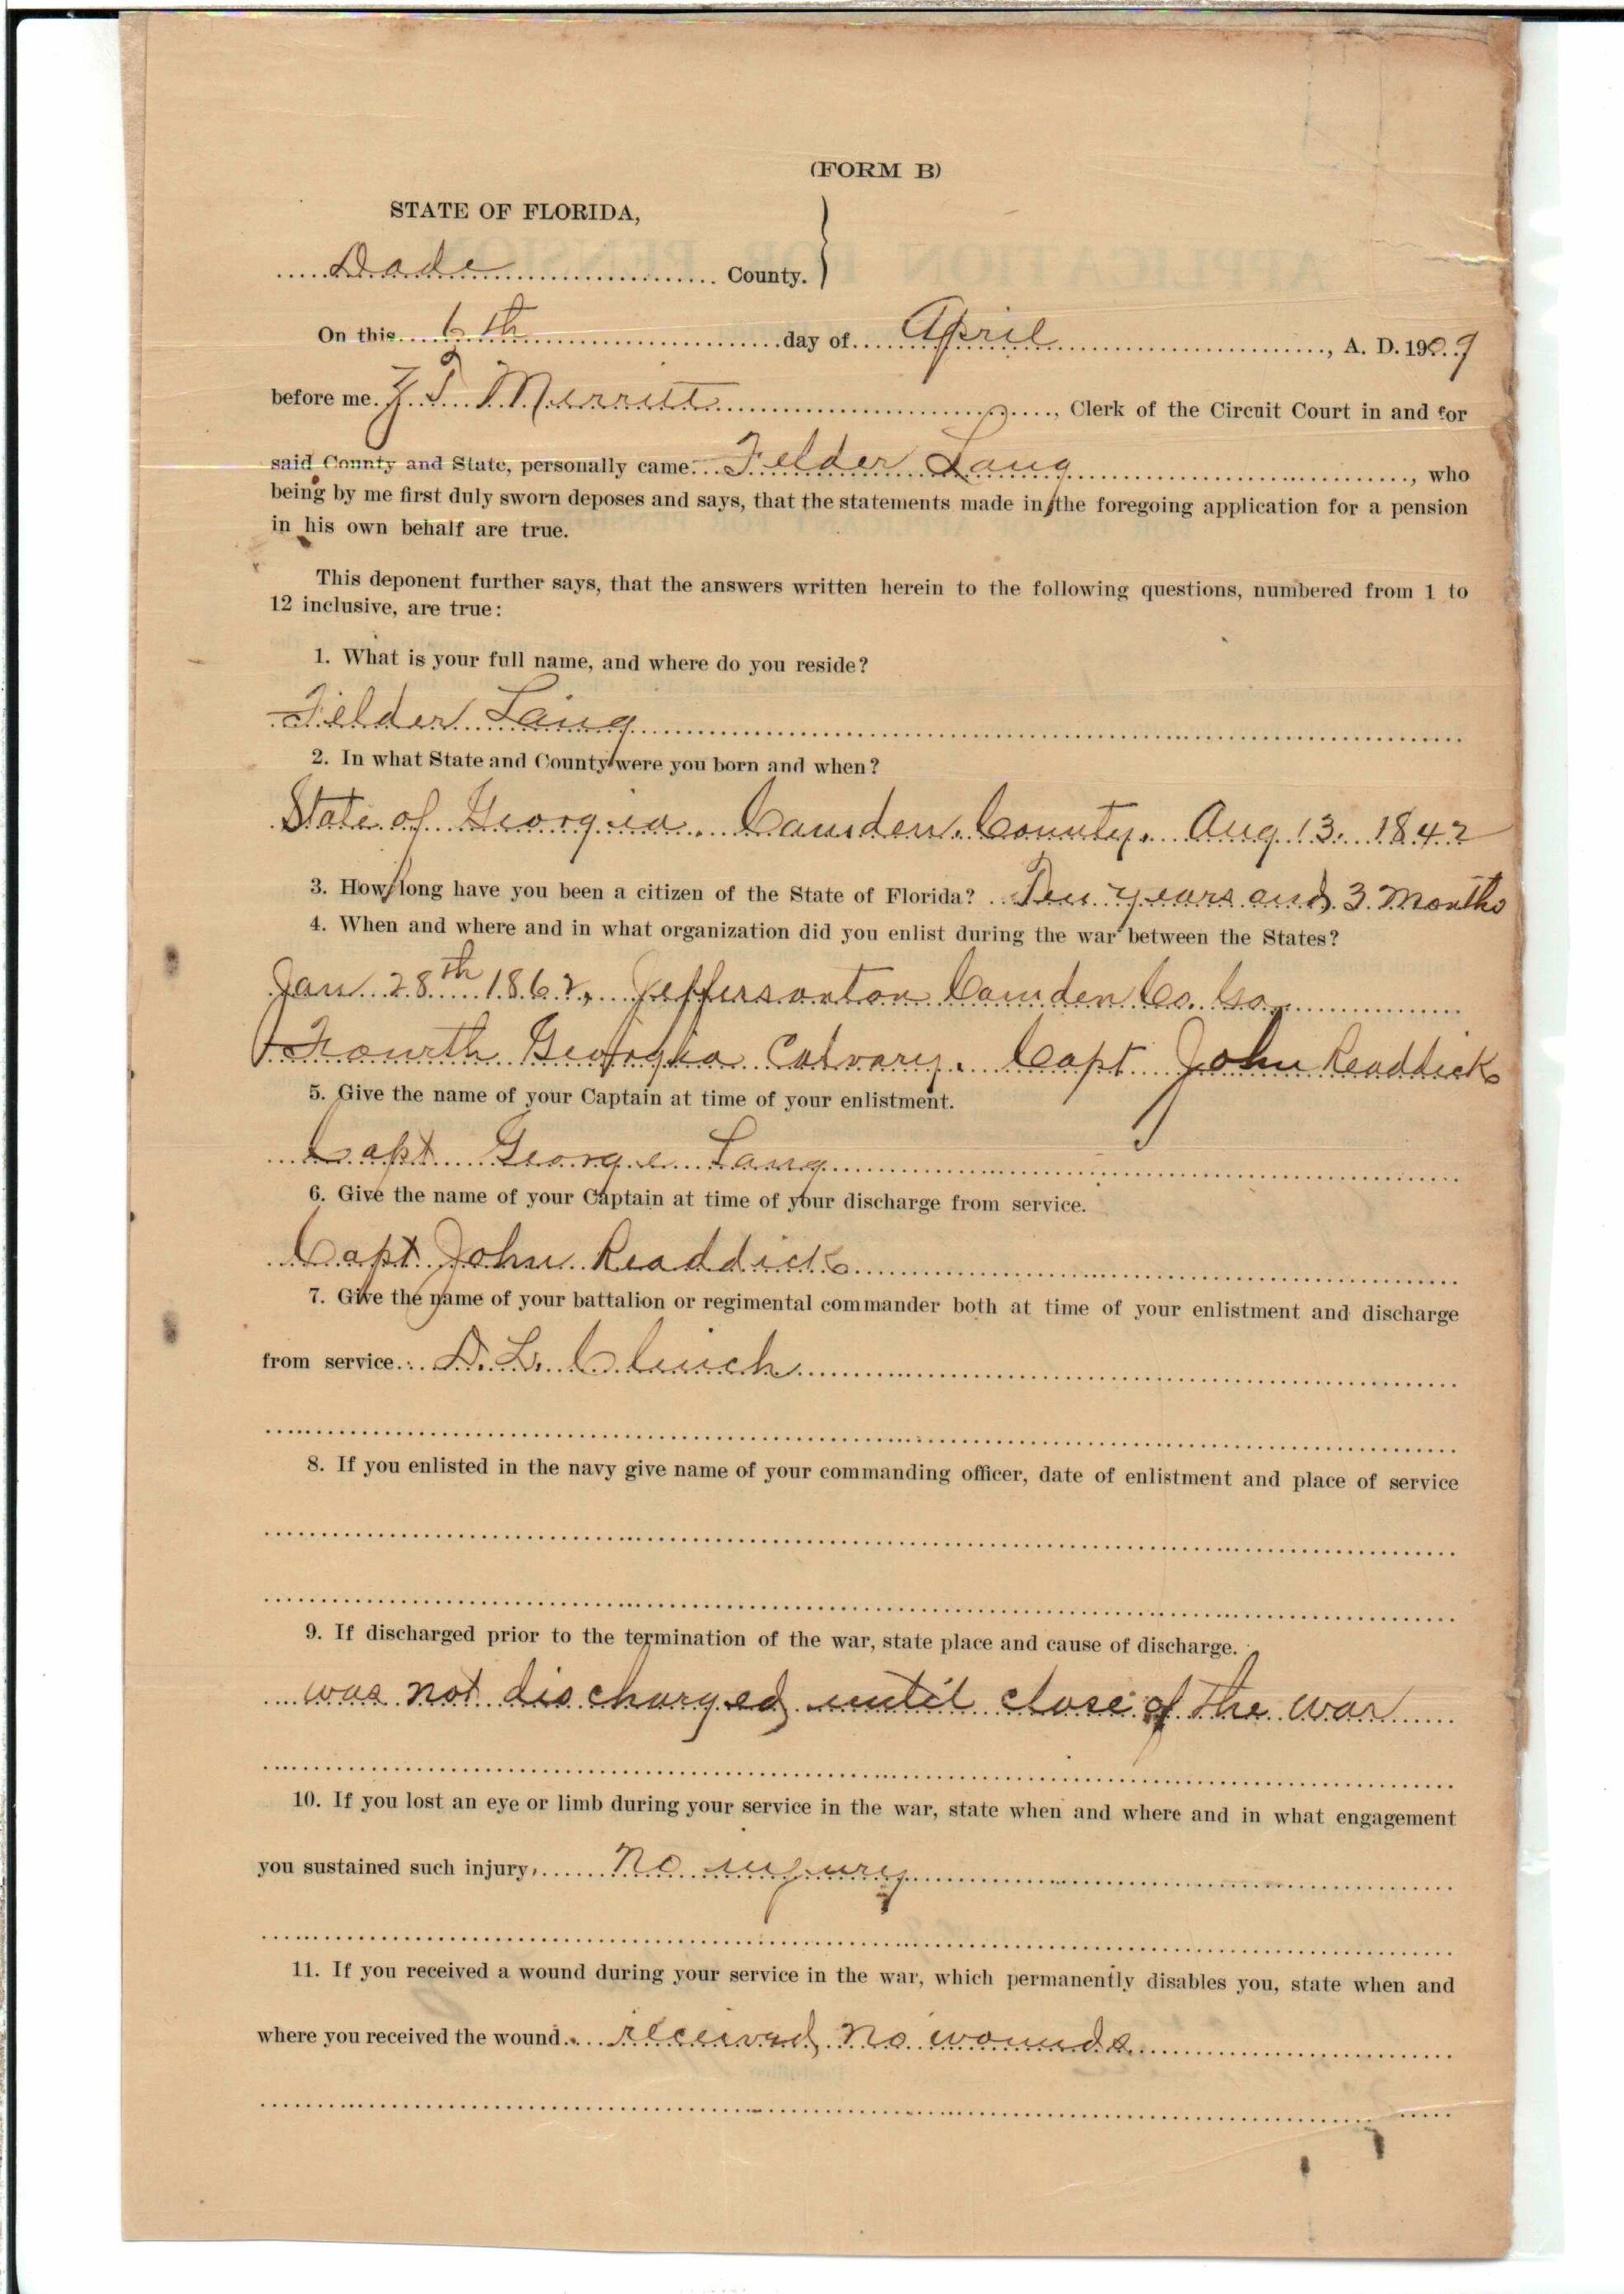 (FORM B)
STATE OF FLORIDA,
Dade County.
On this 6th day of April, A. D. 1909
before me Z. T. Merritt, Clerk of the Circuit Court in and for
said County and State, personally came Felder Lang, who
being by me first duly sworn deposes and says, that the statements made in the foregoing application for a pension
in his own behalf are true.
This deponent further says, that the answers written herein to the following questions, numbered from 1 to
12 inclusive, are true:
1. What is your full name, and where do you reside?
Fielder Lang
2. In what State and County were you born and when?
State of Georgia. Camden County. Aug 13. 1842
3. How long have you been a citizen of the State of Florida? Ten years and 3 Months
4. When and where and in what organization did you enlist during the war between the States?
Jan 28th 1862, Jeffersonton Camden Co. Ga.
Fourth Georgia Calvary. Capt John Readdick
5. Give the name of your Captain at time of your enlistment.
Capt George Lang
6. Give the name of your Captain at time of your discharge from service.
Capt John Readdick
7. Give the name of your battalion or regimental commander both at time of your enlistment and discharge
from service. D. L. Clinch
8. If you enlisted in the navy give name of your commanding officer, date of enlistment and place of service
9. If discharged prior to the termination of the war, state place and cause of discharge.
was not discharged until close of the war
10. If you lost an eye or limb during your service in the war, state when and where and in what engagement
you sustained such injury, No injury
11. If you received a wound during your service in the war, which permanently disables you, state when and
where you received the wound. received no wounds